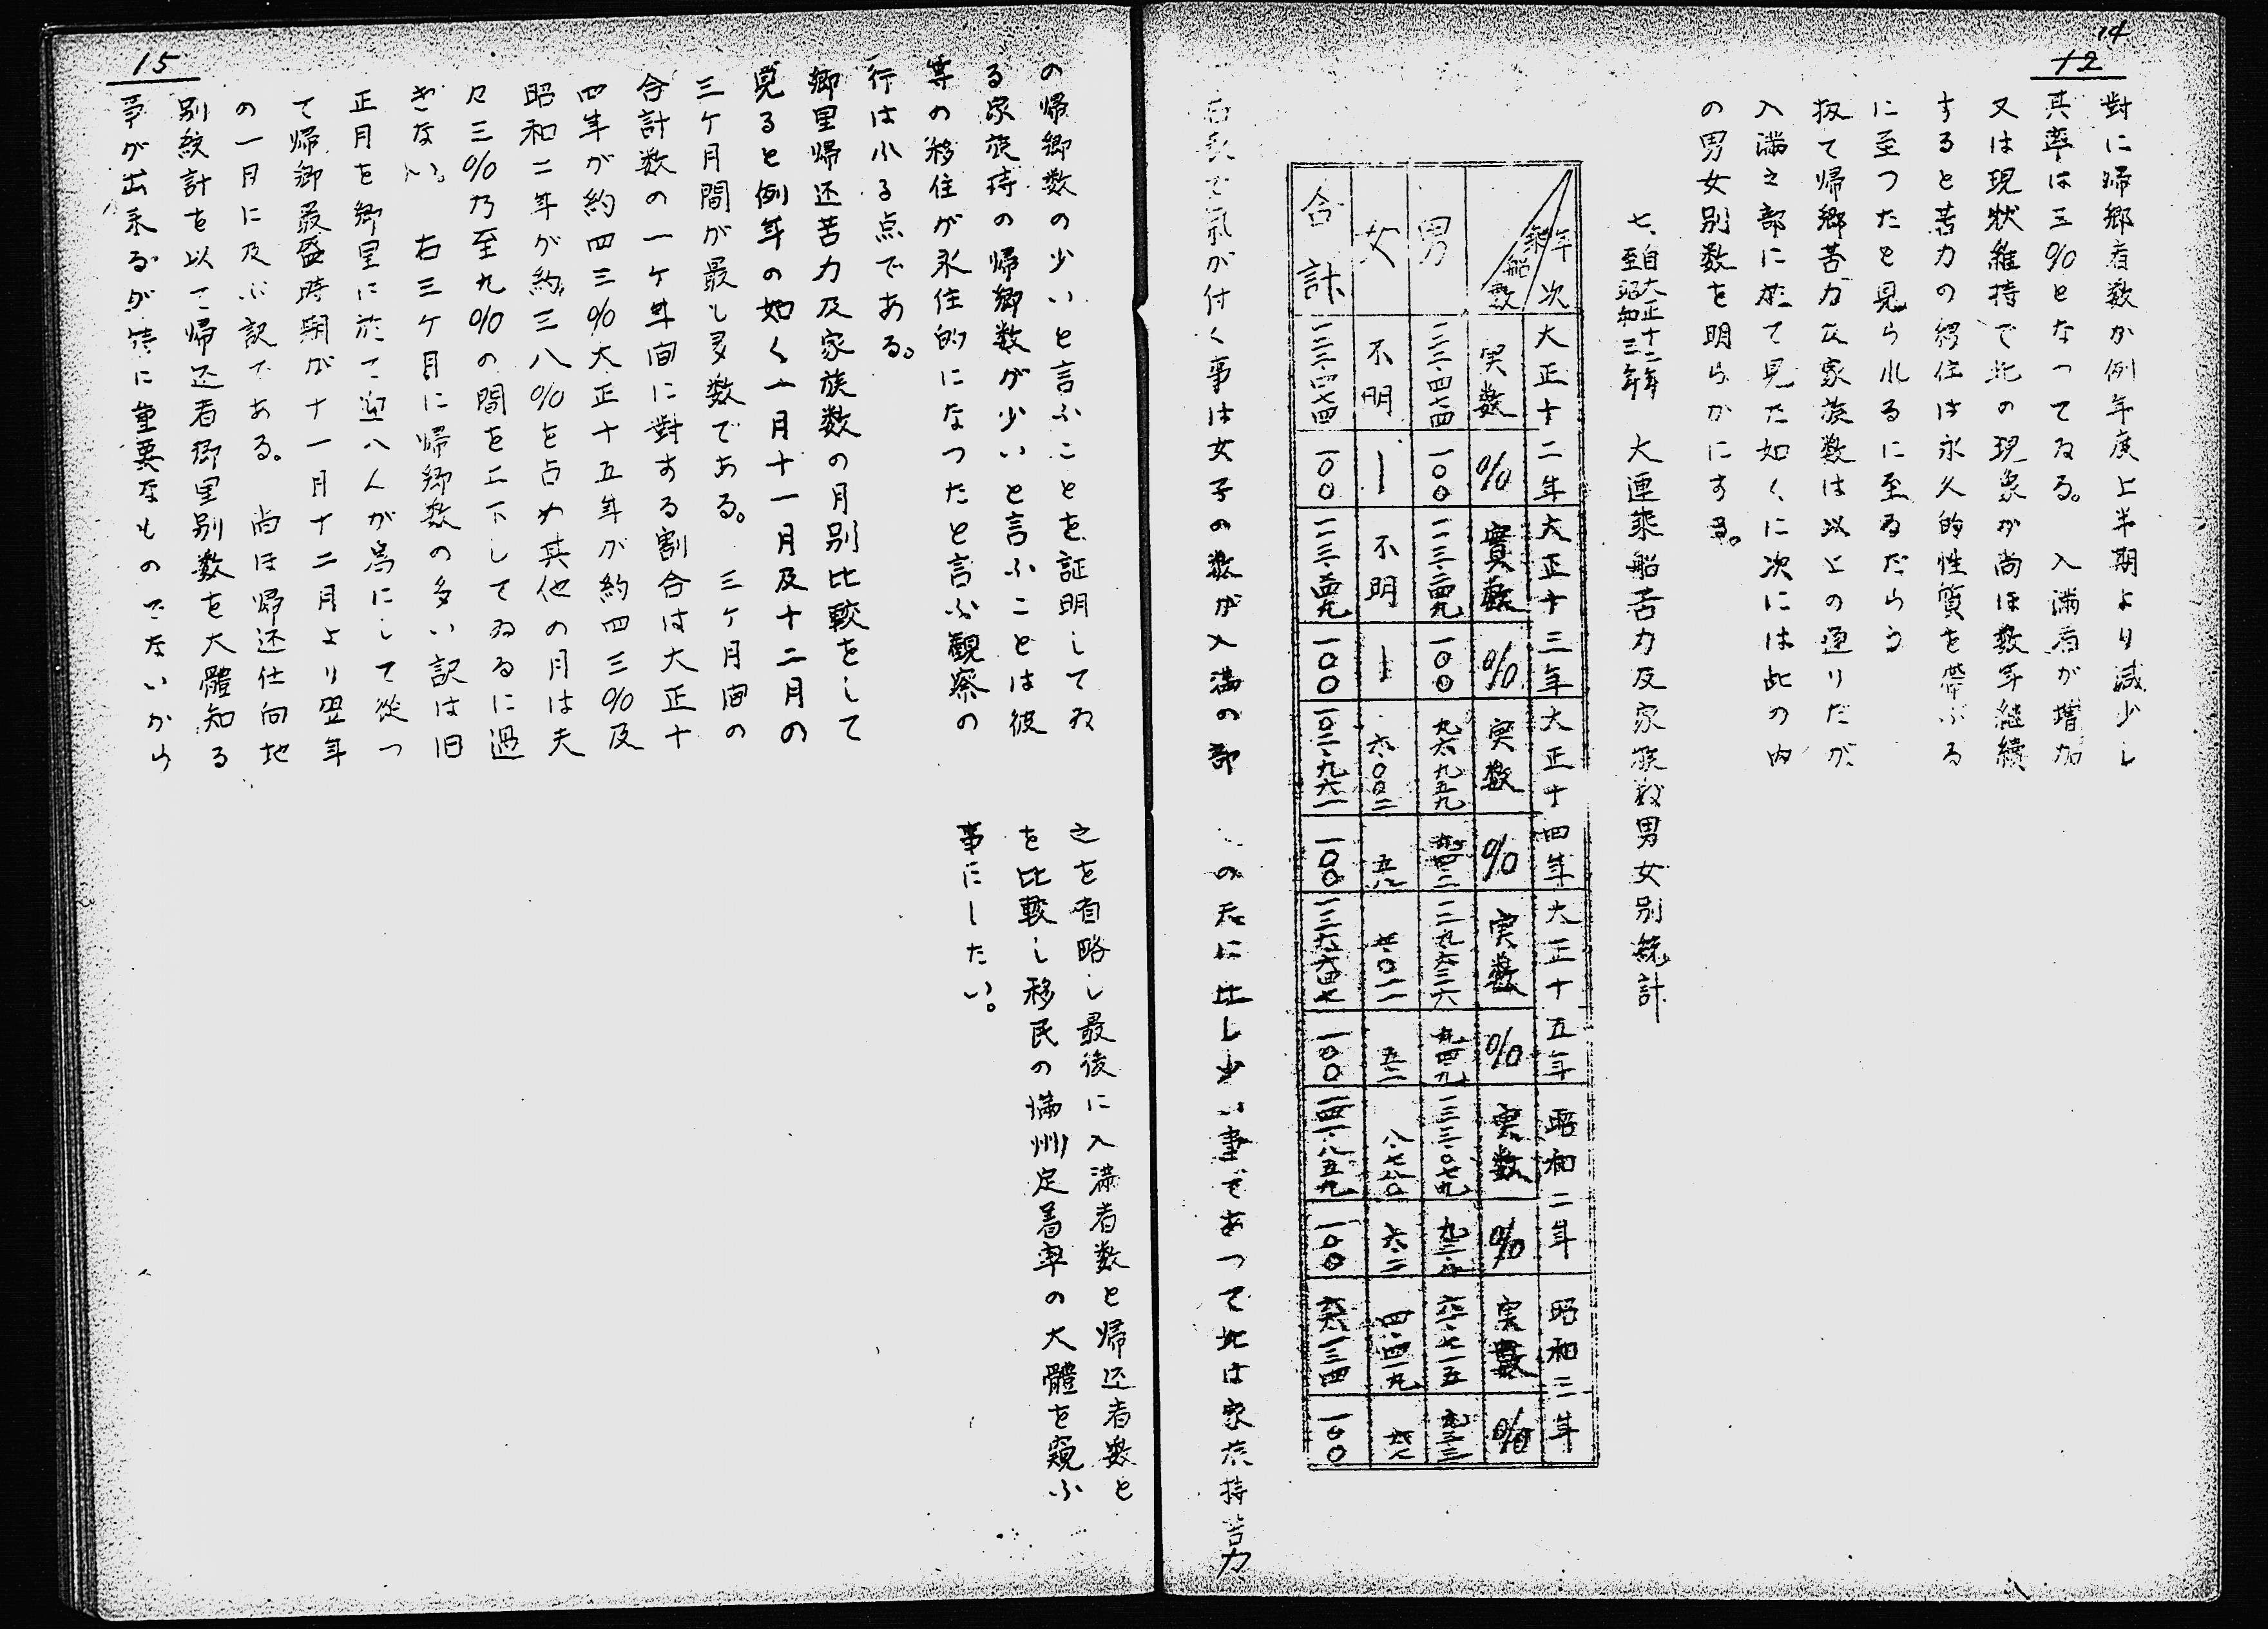 14
12
對に帰郷者数か例年度上半期より減少し
其率は三%となつてゐる。入満者が増加
又は現状維持で此の現象が尚ほ数年継續
すると苦力の移住は永久的性質を帶ぶる
に至つたと見られるに至るだらう
扨て帰郷苦力及家族数は以上の通りだが
入満之部に於て見た如くに次には此の内
の男女別数を明らかにする。
七、自大正十二年至昭和三年 大連乘船苦力及家族数男女別統計
年次 乘船数 大正十二年 大正十三年 大正十四年 大正十五年 昭和二年 昭和三年
実数 % 實数 % 実数 % 実数 % 実数 % 実数 %
男 一〇〇 一〇〇 九六・九五九 一二九・六三六 九四・九 一三三・〇七九 六一・七一五
女 不明 ー 不明 ー 六・〇〇二 五・八 七・〇一一 五・一 八・七八〇 六・二 四・四一九
合計 一〇〇 一〇〇 一〇二・九六一 一〇〇 一三六・六四七 一〇〇 一四一・八五九 一〇〇 六六・一三四 一〇〇
右表で気が付く事は女子の数が入満の部 の夫に比し少い事であつて此は家族持苦力
15
の帰郷数の少いと言ふことを証明してゐ
る家族持の帰郷数が少いと言ふことは彼
等の移住が永住的になつたと言ふ観察の
行はれる点である。
郷里帰还苦力及家族数の月別比較をして
見ると例年の如く一月十一月及十二月の
三ケ月間が最も多数である。三ケ月間の
合計数の一ケ年间に對する割合は大正十
四年が約四三%大正十五年が約四三%及
昭和二年が約三八%を占め其他の月は夫
々三%乃至九%の間を上下してゐるに過
きない。右三ケ月に帰郷数の多い訳は旧
正月を郷里に於て迎へんが為にして從つ
て帰郷最盛時期が十一月十二月より翌年
の一月に及ぶ訳である。尚ほ帰还仕向地
別統計を以て帰还者郷里別数を大體知る
事が出来るが特に重要なものでないから
之を省略し最後に入満者数と帰还者数と
を比較し移民の満州定着率の大體を窺ふ
事にしたい。